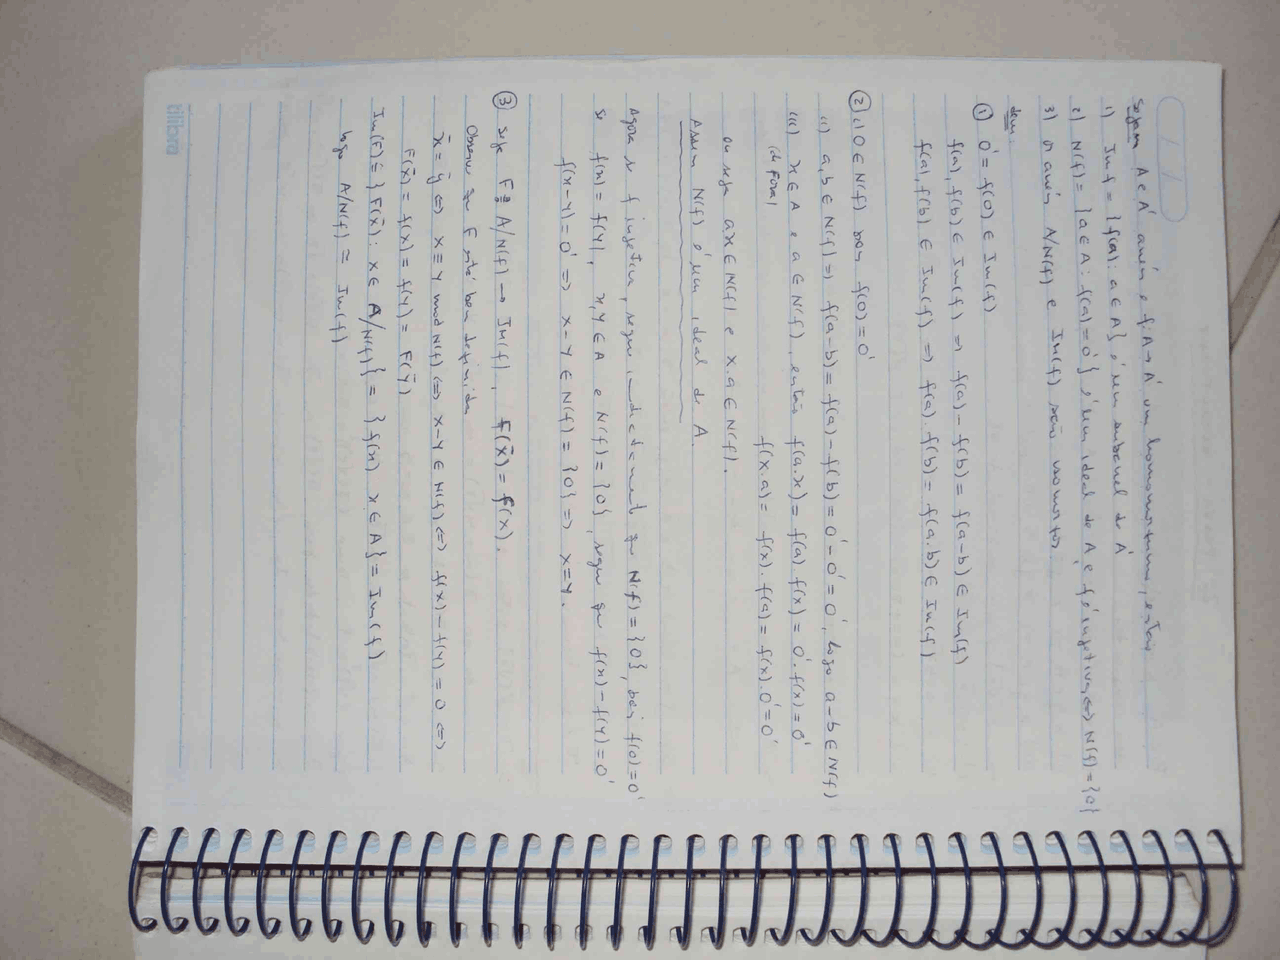 Sejam A e A' anéis e f: A → A' um homomorfismo, então
1) Imf = {f(a) : a ∈ A} é um subanel de A'
2) N(f) = {a ∈ A : f(a) = 0'} é um ideal de A, e f é injetiva ⇔ N(f) = {0}
3) os anéis A/N(f) e Im(f) são isomorfos.
dem:
① 0' = f(0) ∈ Im(f)
f(a), f(b) ∈ Im(f) ⇒ f(a) - f(b) = f(a-b) ∈ Im(f)
f(a), f(b) ∈ Im(f) ⇒ f(a) . f(b) = f(a.b) ∈ Im(f)
② (i) 0 ∈ N(f) pois f(0) = 0'
(ii) a, b ∈ N(f) ⇒ f(a-b) = f(a) - f(b) = 0' - 0' = 0', logo a-b ∈ N(f)
(iii) x ∈ A e a ∈ N(f), então f(a.x) = f(a) . f(x) = 0' . f(x) = 0'
f(x.a) = f(x) . f(a) = f(x) . 0' = 0'
ou seja ax ∈ N(f) e x.a ∈ N(f).
Assim N(f) é um ideal de A.
Agora se f injetiva, segue que N(f) = {0}, pois f(0) = 0'
se f(x) = f(y), x, y ∈ A e N(f) = {0}, segue que f(x) - f(y) = 0'
f(x-y) = 0' ⇒ x-y ∈ N(f) = {0} ⇒ x = y.
③ seja F: A/N(f) → Im(f), F(x̄) = f(x).
Observe que F está bem definida
x̄ = ȳ ⇔ x ≡ y mod N(f) ⇔ x-y ∈ N(f) ⇔ f(x) - f(y) = 0 ⇔
F(x̄) = f(x) = f(y) = F(ȳ)
Im(F) = {F(x̄) : x ∈ A/N(f)} = {f(x) x ∈ A} = Im(f)
logo A/N(f) ≅ Im(f)
tilibra